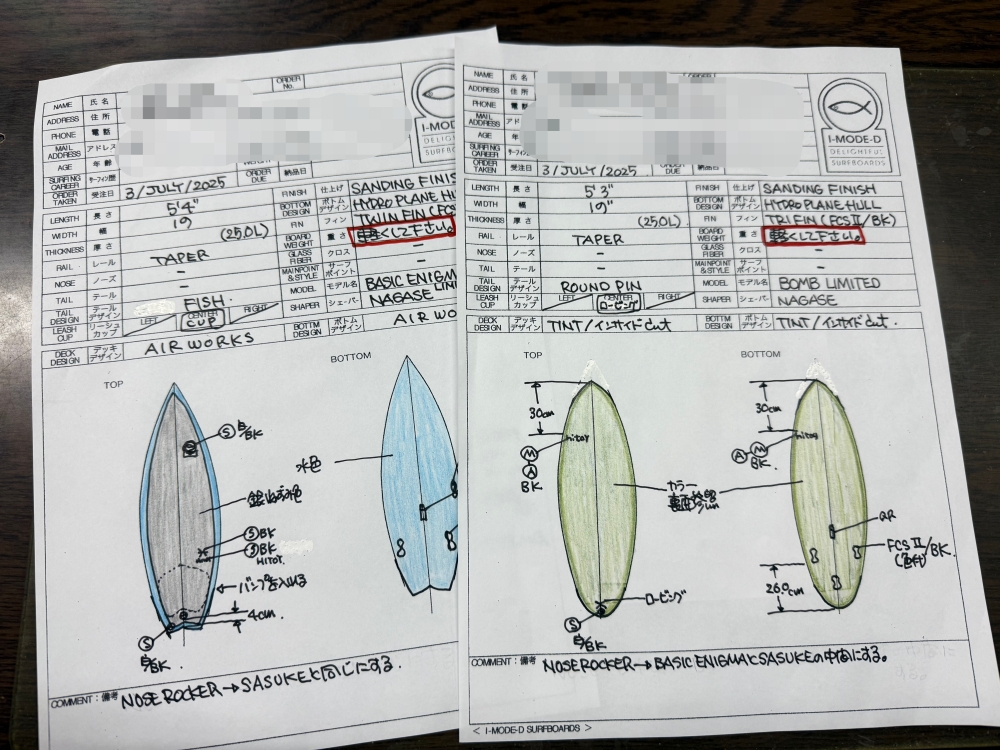 ORDER No.
NAME 氏名
ADDRESS 住所
PHONE 電話
MAIL ADDRESS アドレス
AGE 年齢
SURFING CAREER サーフィン歴
ORDER TAKEN 受注日 3/JULY/2025 ORDER DUE 納品日
I-MODE-D
DELIGHTFUL
SURFBOARDS
LENGTH 長さ 5'4" FINISH 仕上げ SANDING FINISH
WIDTH 幅 19" BOTTOM DESIGN ボトムデザイン HYDRO PLANE HU
THICKNESS 厚さ (25.0L) FIN フィン TWIN FIN (FCS
RAIL レール TAPER BOARD WEIGHT 重さ 軽くして下さい。
NOSE ノーズ - GLASS FIBER クロス -
TAIL テール - MAINPOINT & STYLE サーフポイント -
TAIL DESIGN テールデザイン FISH. MODEL モデル名 BASIC ENIGM
LEASH CUP リーシュカップ LEFT CENTER CUP RIGHT SHAPER シェーパー NAGASE
DECK DESIGN デッキデザイン AIR WORKS BOTTM DESIGN ボトムデザイン AIR WOR
TOP
BOTTOM
S 白/BK
水色
S BK
S BK
HITOT
バンプを入れる
4cm
S
白/BK.
COMMENT:備考 NOSE ROCKER→SASUKEと同じにする.
ORDER No.
NAME 氏名
ADDRESS 住所
PHONE 電話
MAIL ADDRESS アド
AGE 年齢
SURFING CAREER サーフィン歴
ORDER TAKEN 受注日 3/JULY/2025 ORDER DUE 納品日
I-MODE-D
DELIGHTFUL
SURFBOARDS
LENGTH 長さ 5'3" FINISH 仕上げ SANDING FINISH
WIDTH 幅 19" BOTTOM DESIGN ボトムデザイン HYDRO PLANE HULL
THICKNESS 厚さ (25.0L) FIN フィン TRI FIN (FCSⅡ/BK)
RAIL レール TAPER BOARD WEIGHT 重さ 軽くして下さい。
NOSE ノーズ - GLASS FIBER クロス -
TAIL テール - MAINPOINT & STYLE サーフポイント -
TAIL DESIGN テールデザイン ROUND PIN MODEL モデル名 BOMB LIMITED
LEASH CUP リーシュカップ LEFT CENTER ロービング RIGHT SHAPER シェーパー NAGASE
DECK DESIGN デッキデザイン TINT/インサイドcut BOTTM DESIGN ボトムデザイン TINT/インサイドcut.
TOP
BOTTOM
30cm
hitoy
M
A
BK
30cm
hitoy
A M
BK.
カラー
QR
FCSⅡ/BK.
26.0cm
ロービング
S
白/BK
COMMENT:備考 NOSE ROCKER→BASIC ENIGMAとSASUKEの中間にする。
< I-MODE-D SURFBOARDS >